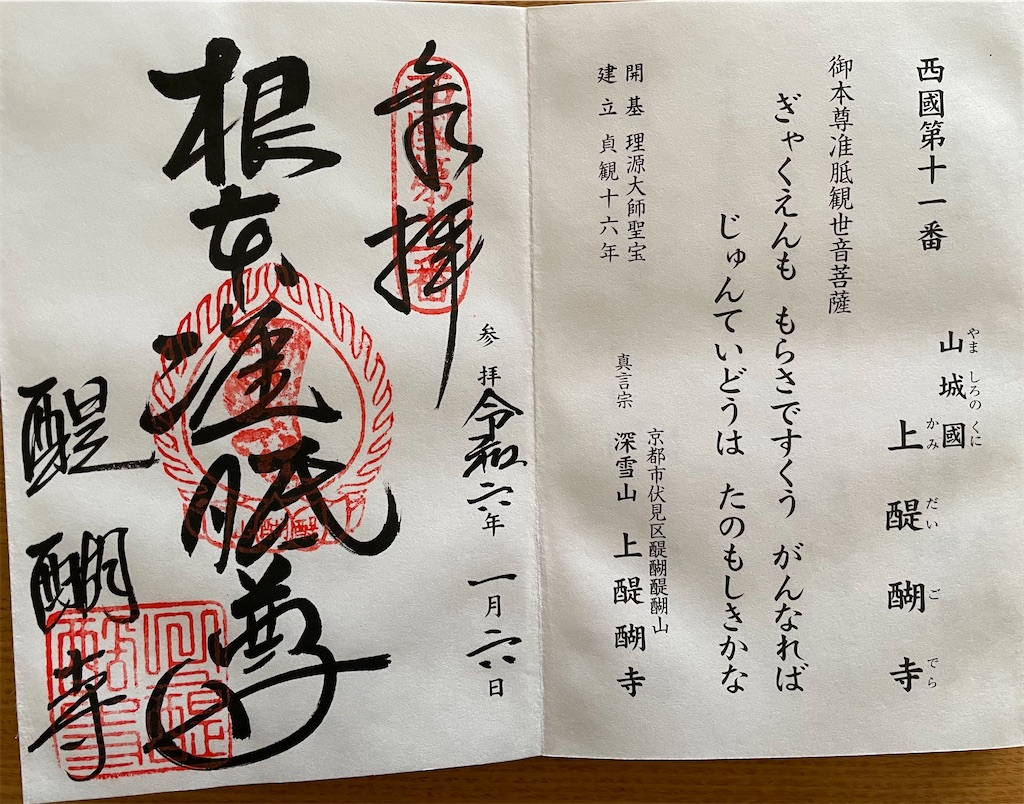 西國第十一番
やま しろの くに
山城國
かみ だい ご でら
上醍醐寺
御本尊准胝観世音菩薩
ぎゃくえんも もらさですくう がんなれば
じゅんていどうは たのもしきかな
開基 理源大師聖宝
建立 貞観十六年
京都市伏見区醍醐醍醐山
真言宗 深雪山 上醍醐寺
参拝 令和六年 一月六日
奉拝
西國第十一番
根本准胝尊
醍醐寺